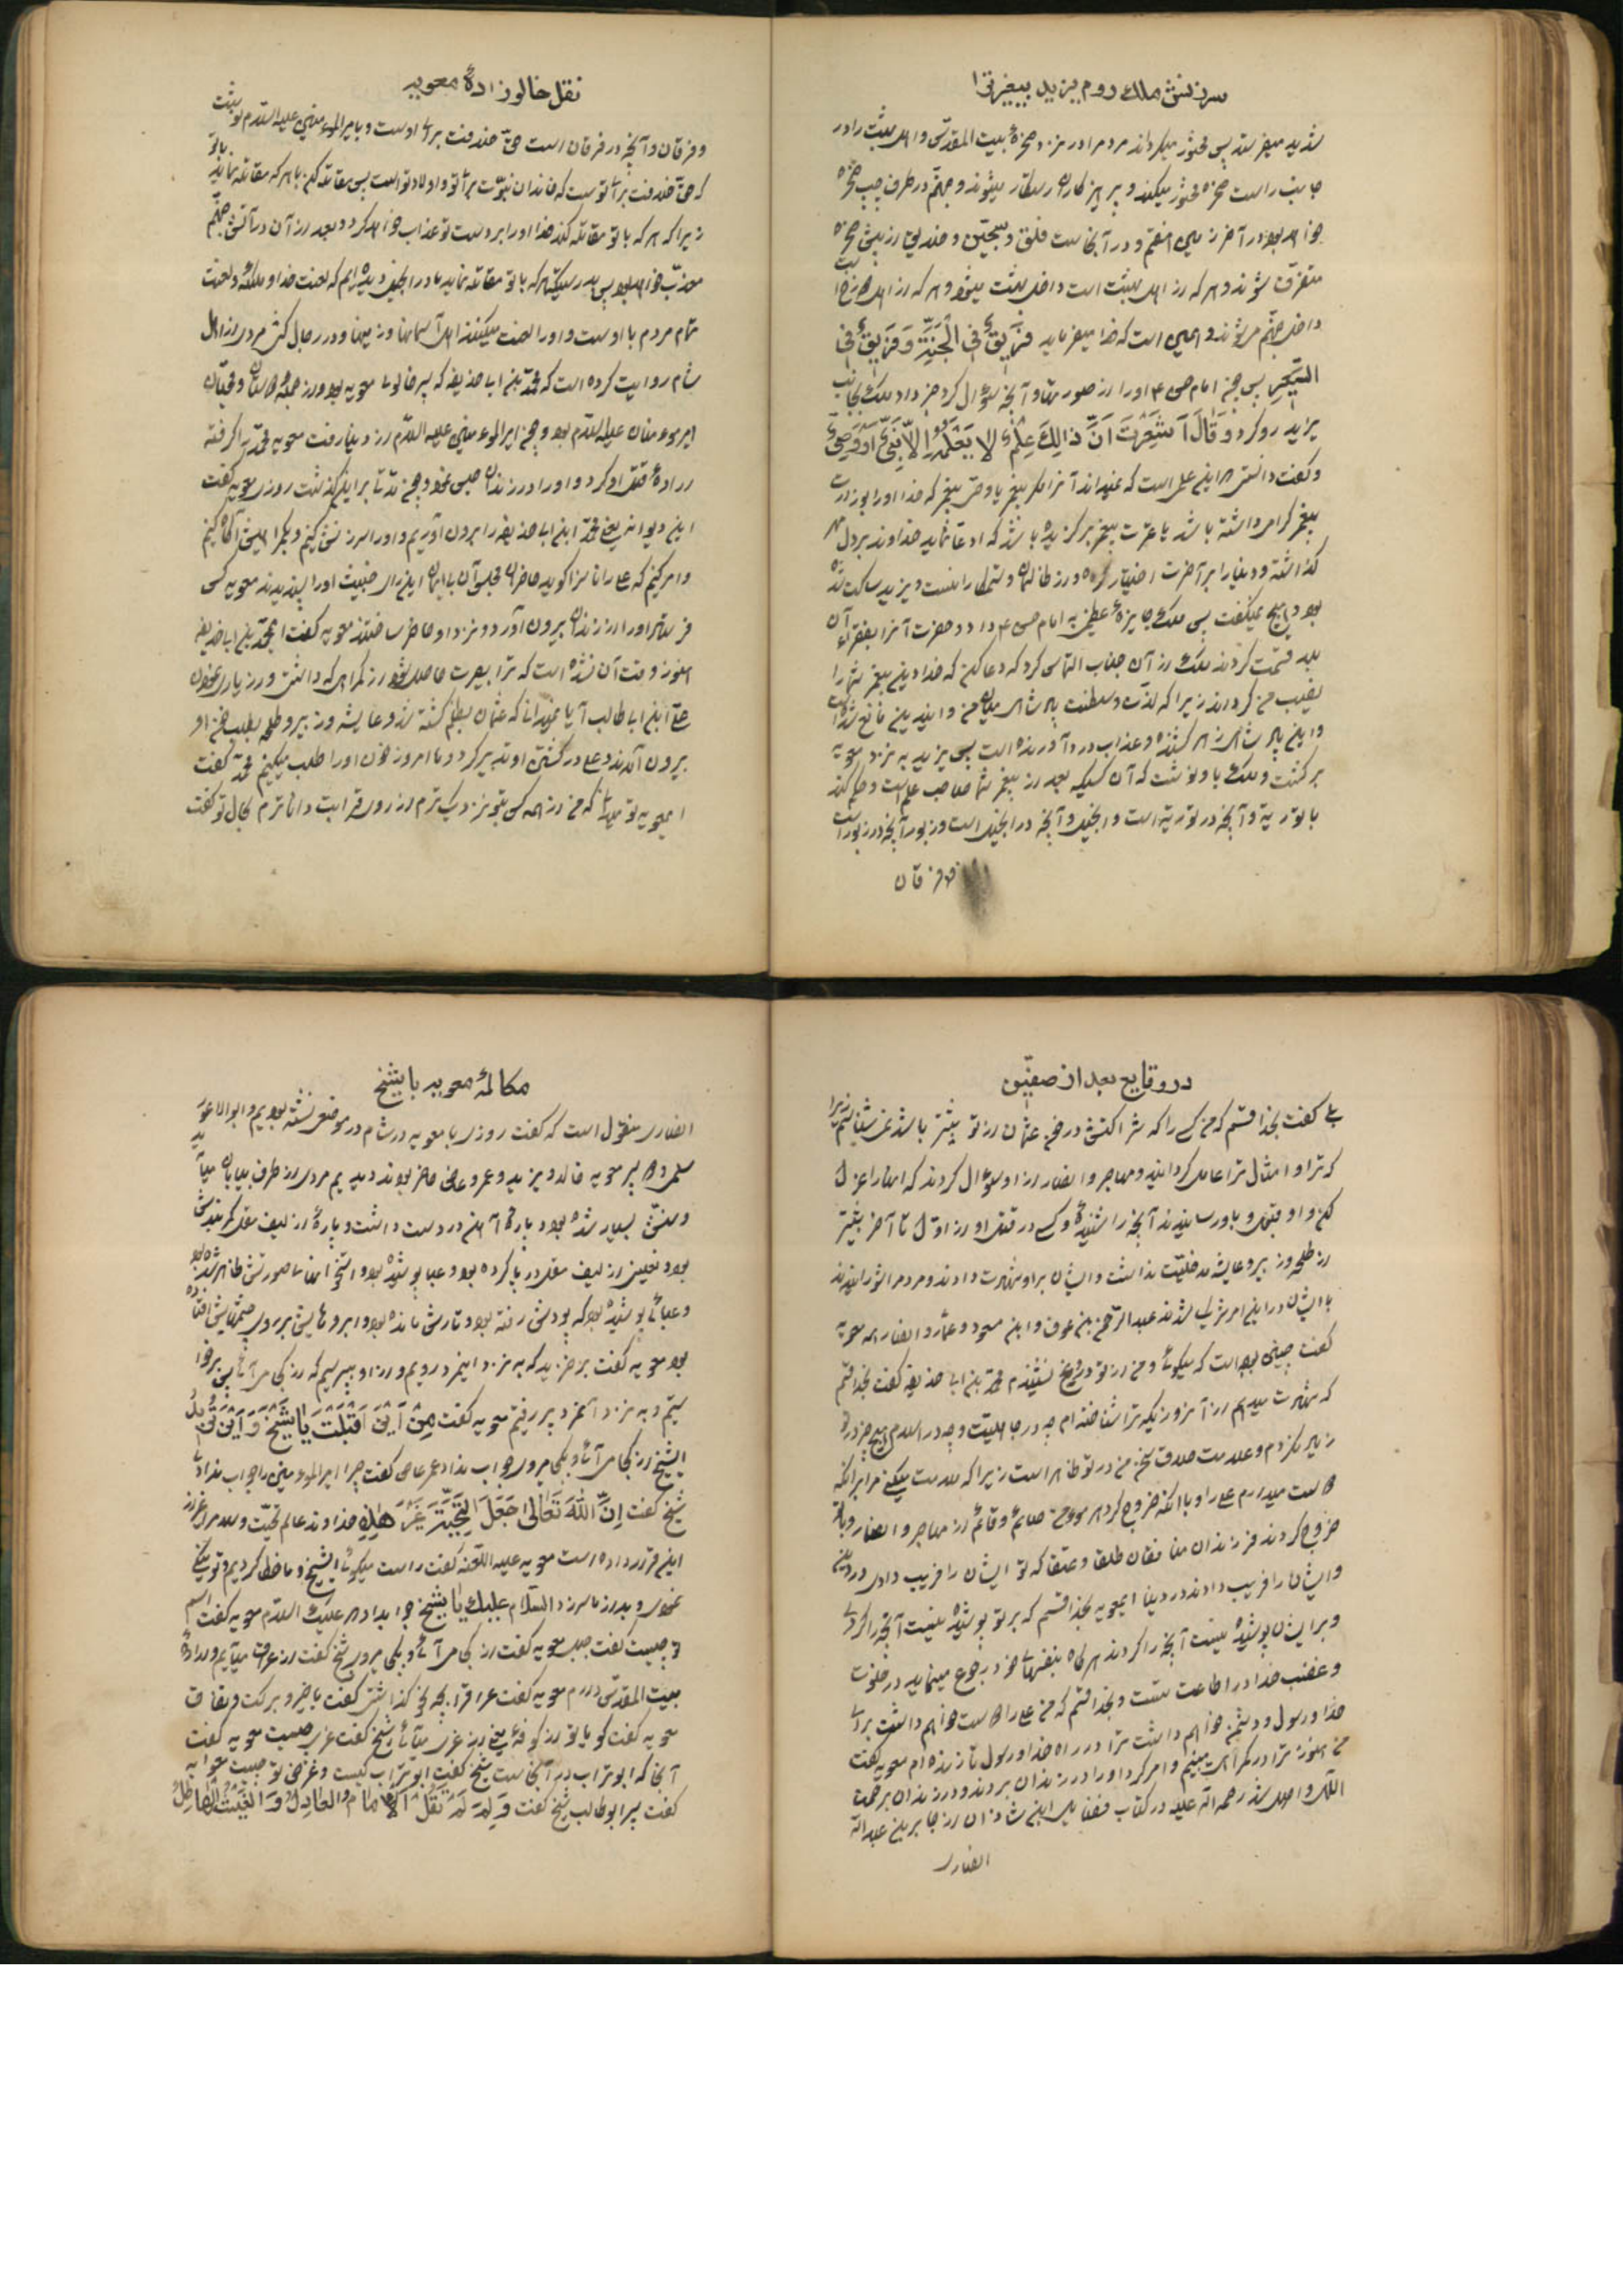 سرزنش ملك روم یزید بیغیرترا
شدید میفرستد پس محشور میکرداند مردم را در نزد صخرهٔ بیت المقدّس و اهل بهشت را در
جانب راست صخره محشور میکند و پرهیزکاران رستکار میشوند و جهنّم در طرف چپ صخره
خواهد بود در آخر زمین هفتم و در آنجاست فلق و سجّین و خندیق از پیش صخره
متفرق شوند و هر که از اهل بهشت است داخل بهشت میشود و هر که از اهل دوزخ است
داخل جهنّم میشوند و همین است که خدا میفرماید فَرِیقٌ فِی الْجَنَّةِ وَ فَرِیقٌ فِی
السَّعِیرِ پس چون امام حسن ع او را از صورتها و آنچه سؤال کرد خبر داد ملك بجانب
یزید رو کرد وَ قَالَ اَشَعَرْتَ اَنَّ ذٰلِكَ عِلْمٌ لا یَعْلَمُهُ اِلاّ نَبِیٌّ اَوْ وَصِیٌّ
و کفت دانستی که این علمی است که نمیداند آنرا مکر پیغمبر یا وصیّ پیغمبر که خدا او را بوزارت
پیغمبر کرامی داشته باشد یا عترت پیغمبر برکزیده باشد که ادعا نماید خداوند بر دل مهر
کذاشته و دنیا را بر آخرت اختیار کرده و از ظالمان و ستمکارانست و یزید ساکت شده
بود و هیچ نمیکفت پس ملك جایزهٔ عظیمی به امام حسن ع داد و حضرت آنرا بفقراء آن
بلد قسمت کردند ملك از آن جناب التماس کرد که دعا کن که خدا دین پیغمبر شما را
نصیب من کرداند زیرا که لذّت و سلطنت پادشاهی میان من و این دین مانع شده است
و این پادشاهی زهر کشنده و عذاب دردآورنده است پس یزید به نزد معویه
برکشت و ملك باو نوشت که آن کسیکه بعد از پیغمبر شما صاحب علم است و حکم کند
با توریة و آنچه در توریة است و انجیل و آنچه در انجیل است و زبور و آنچه در زبور است
و فرقان
نقل خالوزادهٔ معویه
و فرقان و آنچه در فرقان است حقّ خلافت برای اوست و بامیر المؤمنین علیه السّلام نوشت
که حقّ خلافت برای توست که خاندان نبوّت برای تو و اولاد تو است پس مقاتله کن با هر که مقاتله نماید با تو
زیرا که هر که با تو مقاتله کند خدا او را بر دست تو عذاب خواهد کرد و بعد از آن در آتش جهنّم
معذّب خواهد بود پس بدرستیکه هر که با تو مقاتله نماید ما در انجیل دیده‌ایم که لعنت خدا و ملئکه و لعنت
تمام مردم با اوست و او را لعنت میکنند اهل آسمانها و زمینها و در رجال کشی مردی از اهل
شام روایت کرده است که محمّد بن ابا حذیفه که پسر خالوی معویه بود و از جمله دوستان و محبّان
امیر مؤمنان علیه السّلام بود و چون امیر المؤمنین علیه السّلام از دنیا رفت معویه محمّد را کرفته
ارادهٔ قتل او کرد و او را در زندان حبس نمود و چون مدّتی بر این بکذشت روزی معویه کفت
این دیوانه یعنی محمّد ابن ابا حذیفه را برون آوریم و او را سرزنش کنیم و بکمراهیش آکاه کنیم
و امر کنیم که علی را ناسزا کوید حاضران مجلس آن بیایمان این رای خبیث او را پسندیدند معویه کسی
فرستاد او را از زندان بیرون آوردند و نزد او حاضر ساختند معویه کفت ای محمّد بن ابا حذیفه
هنوز وقت آن نشده است که ترا بصیرت حاصل شود از کمراهی که داشتی و از یاری نمودن
علیّ ابن ابا طالب آیا نمیدانی که عثمان بظلم کشته شد و عایشه و زبیر و طلحه بطلب خون او
برون آمدند و علی در کشتن او تدبیر کرد و ما امروز خون او را طلب میکنیم محمّد کفت
ای معویه تو میدانی که من از همه کس بتو نزدیک ترم از روی قرابت و داناترم بحال تو کفت
در وقایع بعد از صفّین
بلی کفت بخدا قسم که من کسی را که شراکتش در خون عثمان از تو بیشتر باشد نمیشناسم زیرا
که ترا و امثال ترا عامل کردانید و مهاجر و انصار از او سؤال کردند که اینها را عزل
کن و او قبول نکرد باو رسانیدند آنچه را شنیدهٔ و کسی در قتل او از اوّل تا آخر بیشتر
از طلحه و زبیر و عایشه مدخلیّت نداشت و ایشان بر او شهادت دادند و مردم را شورانیدند
با ایشان در این امر شریك شدند عبد الرّحمن بن عوف و ابن مسعود و عمّار و انصار همه معویه
کفت چنین بوده است که میکوئی و من از تو دروغی نشنیدم محمّد بن ابا حذیفه کفت بخدا قسم
که شهادت میدهم از آنروزیکه ترا شناخته‌ام چه در جاهلیّت و چه در اسلام هیچ چیز در تو
زیاد نکردم و علامت صدق سخن من در تو ظاهر است زیرا که ملامت میکنی مرا برآنکه
دوست میدارم علی را و با آنکه خروج کرد هر مؤمن صائم و قائم از مهاجر و انصار و با تو
خروج کردند فرزندان منافقان طلقا و عتقا که تو ایشان را فریب دادی در دین
و ایشان ترا فریب دادند در دنیا ای معویه بخدا قسم که بر تو پوشیده نیست آنچه را کردی
و بر ایشان پوشیده نیست آنچه را کردند هر کاه بنفسهای خود رجوع مینمایند در خلوت
و غضب خدا در اطاعت تست و بخدا قسم که من علی را دوست خواهم داشت برای
خدا و رسول و دشمن خواهم داشت ترا در راه خدا و رسول تا زنده‌ام معویه کفت
من هنوز ترا در کمراهی می‌بینم و امر کرد او را در زندان بردند و در زندان برحمت
الهی واصل شد رحمه اللّه علیه در کتاب فضایل ابن شاذان از جابر بن عبد اللّه
انصاری
مکالمهٔ معویه با شیخ
انصاری منقول است که کفت روزی با معویه در شام در موضعی نشسته بودیم و ابو الاعور
سلمی و پسر معویه خالد و یزید و عمرو عاص حاضر بودند دیدیم مردی از طرف بیابان میآید
و سنّش بسیار شده بود و پارهٔ آهن در دست داشت و پارهٔ از لیف مقل کمربندش
بود و نعلین از لیف مقل در پا کرده بود و عبا پوشیده بود و استخوانهای صورتش ظاهر شده بود
و عبائی پوشیده بود که پودش رفته بود و تارش مانده بود و ابروهایش بر روی چشمهایش افتاده
بود معویه کفت برخیزید که به نزد این مرد رویم و از او بپرسیم که از کجا میآید پس برخوا
ستیم و به نزد آنمرد پیر رفتیم معویه کفت مِنْ اَیْنَ اَقْبَلْتَ یٰا شَیْخُ وَ اَیْنَ تُرِیدُ
ایشیخ از کجا میآئی و بکجا میروی جواب نداد عمرو عاص کفت چرا امیر المؤمنین را جواب ندادی
شیخ کفت اِنَّ اللّٰهَ تَعَالیٰ جَعَلَ التَّحِیَّةَ غَیْرَ هٰذِهِ خداوند عالم تحیّت و سلام را غیر از
این قرار داده است معویه علیه اللّعنه کفت راست میکوئی ایشیخ و ما خطا کردیم و تو نیکی
نمودی و بد از ما سر زد السَّلام علیك یٰا شیخ جواب داد و علیك السّلام معویه کفت اسم
تو چیست کفت جبل معویه کفت از کجا میآئی و بکجا میروی شیخ کفت از عراق میآیم و ارادهٔ
بیت المقدّس دارم معویه کفت عراق را بچه نحو کذاشتی کفت با خیر و برکت و نفاق
معویه کفت کویا تو از کوفه یعنی از غری میآئی شیخ کفت غری چیست معویه کفت
آنجا که ابو تراب در آنجاست شیخ کفت ابو تراب کیست و غرض تو چیست معویه
کفت پسر ابو طالب شیخ کفت وَ لِمَ لَمْ تَقُلْ اَلْاِمٰامُ الْعَادِلُ وَ الْغَیْثُ الْهٰاطِلُ